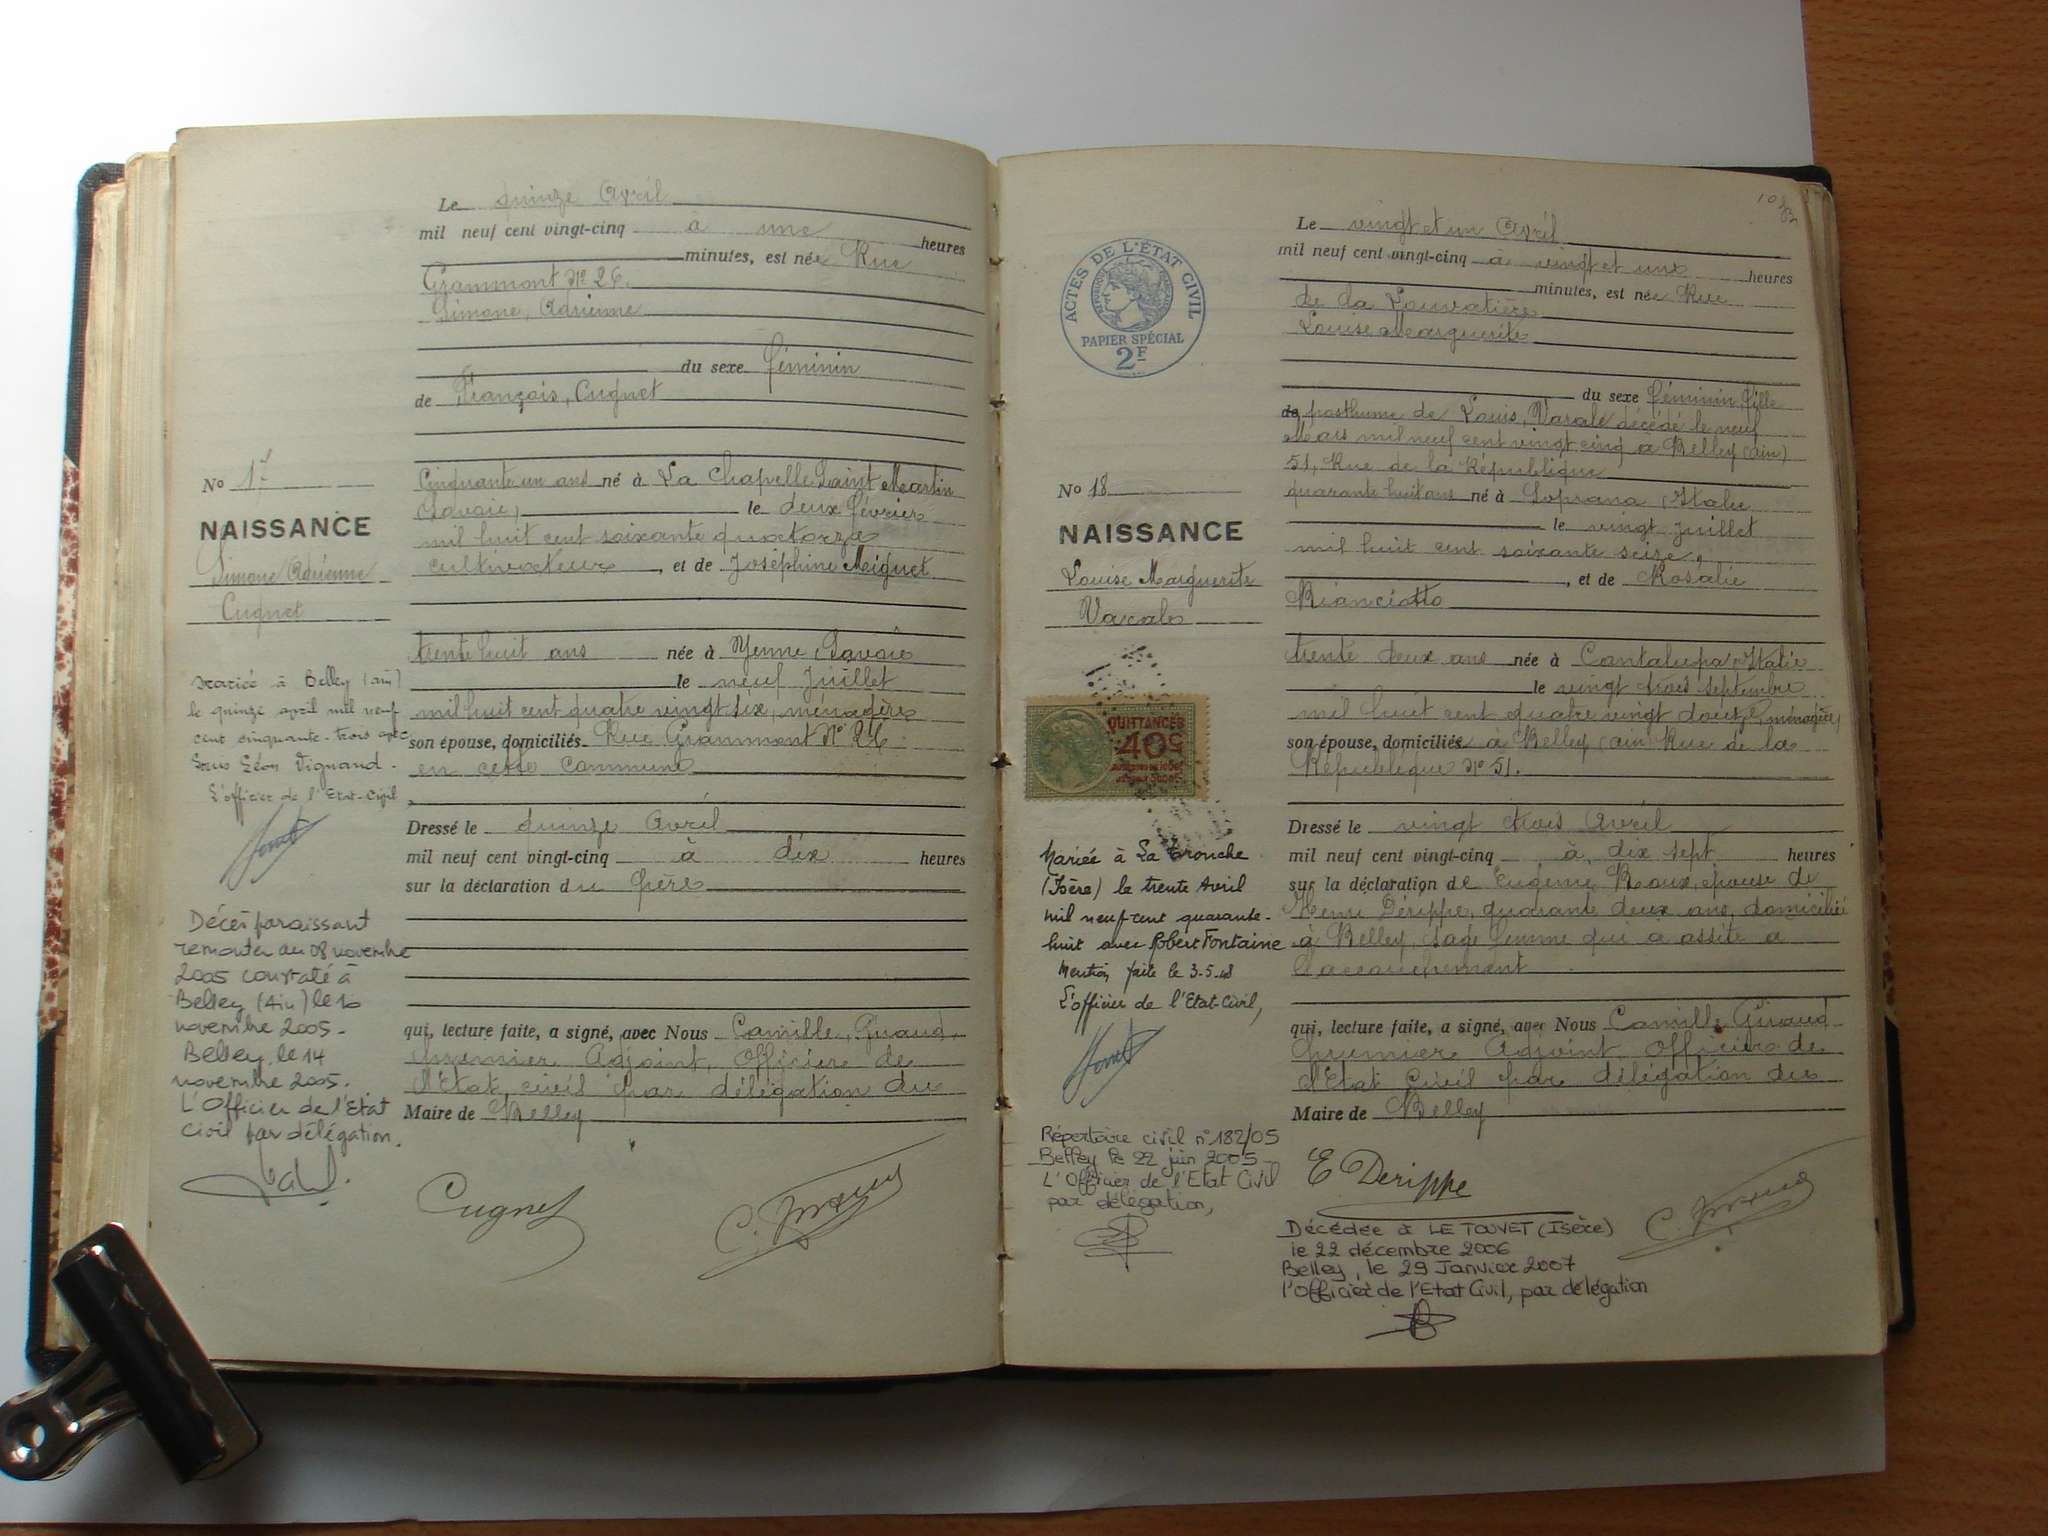 Le quinze Avril
mil neuf cent vingt-cinq à une heures
minutes, est née Rue
Grammont Nº 26.
Simone, Adrienne
du sexe féminin
de François, Cugnet
Cinquante un ans né à La Chapelle Saint Martin
Savoie, le deux février
mil huit cent soixante quatorze
cultivateur, et de Joséphine Miguet
trente huit ans née à Yenne Savoie
le neuf Juillet
mil huit cent quatre vingt six, ménagère
son épouse, domiciliés Rue Grammont Nº 26
en cette commune
Dressé le quinze Avril
mil neuf cent vingt-cinq à dix heures
sur la déclaration du père
qui, lecture faite, a signé, avec Nous Camille, Giraud,
premier Adjoint, Officier de
l'Etat civil par délégation du
Maire de Belley
Cugnet
C. Giraud
No 17
NAISSANCE
Simone Adrienne
Cugnet
Mariée à Belley (ain)
le quinze avril mil neuf
cent cinquante-trois avec
Léon Vignand.
L'officier de l'Etat-Civil
Décès paraissant
remonter au 08 novembre
2005 constaté à
Belley (Ain) le 10
novembre 2005.
Belley, le 14
novembre 2005.
L'Officier de l'Etat
civil par délégation.
Le vingt et un Avril
mil neuf cent vingt-cinq à vingt et une heures
minutes, est née Rue
de la Louvatière
Louise Marguerite
du sexe féminin fille
de posthume de Louis, Varale décédé le neuf
Mars mil neuf cent vingt cinq à Belley (ain)
51, Rue de la République
quarante huit ans né à Soprana (Italie
le vingt Juillet
mil huit cent soixante seize,
, et de Rosalie
Bianciotto
trente deux ans née à Cantalupa Italie
le vingt trois septembre
mil huit cent quatre vingt douze, ménagère
son épouse, domiciliés à Belley (ain) Rue de la
République Nº 51.
Dressé le vingt trois Avril
mil neuf cent vingt-cinq à dix sept heures
sur la déclaration de Eugénie Roux, épouse de
Henri Dérippe, quarante deux ans, domiciliée
à Belley, sage femme qui a assité a
l'accouchement
qui, lecture faite, a signé, avec Nous Camille Giraud
premier Adjoint Officier de
l'Etat Civil par délégation du
Maire de Belley
E Derippe
C. Giraud
Décédée à LE TOUVET (Isère)
le 22 décembre 2006
Belley, le 29 Janvier 2007
l'Officier de l'Etat Civil, par délégation
ACTES DE L'ÉTAT CIVIL
PAPIER SPÉCIAL
2F
No 18
NAISSANCE
Louise Marguerite
Varale
QUITTANCES
40c
Mariée à La Tronche
(Isère) le trente Avril
mil neuf cent quarante-
huit avec Robert Fontaine
Mention faite le 3-5-48
L'officier de l'Etat-Civil,
Répertoire civil nº 182/05
Belley le 22 juin 2005
L'Officier de l'Etat Civil
par délégation,